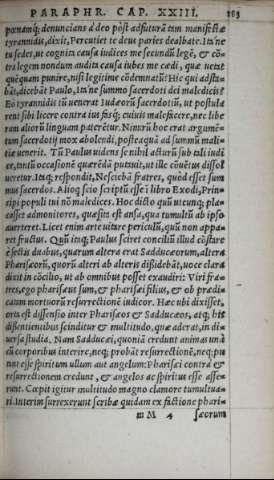 PARAPHR. CAP. XXIII. 183
pœnamq́; denuncians à deo pòst adfuturã tam manifestæ
tyrannidis, dixit, Percutiet te deus paries dealbate. Itáne
tu sedes, ut cognita causa iudices me secundũ legẽ, & cõ=
tra legem nondum audita causa iubes me cædi, quæ uetat
quẽquam punire, nisi legitime cõdemnatũ? Hic qui adsta=
bãt, dicebãt Paulo, Itáne summo sacerdoti dei maledicis?
Eò tyrannidis tũ uenerat Iudæorũ sacerdotiũ, ut postula
rent sibi licere contra ius fasq́; cuiuis malefacere, nec libe
ram aliorũ linguam paterẽtur. Nimirũ hoc erat argumẽ=
tum sacerdotij mox abolendi, posteaquã ad summũ mali=
tiæ uenerit. Tũ Paulus uidens se nihil acturũ sub tali iudi
ce, tantũ occasionẽ quærẽdã putauit, ut ille cõuẽtus dissol
ueretur. Itaq; respondit, Nesciebã fratres, quòd esset sum
mus sacerdos. Alioq́ scio scriptũ esse ĩ libro Exodi, Prin=
cipi populi tui nõ maledices. Hoc dicto quũ utcunq; pla=
casset admonitores, quæsita est ansa, qua tumultũ ab ipso
auerteret. Licet enim arte uitare periculũ, quũ non appa=
ret fructus. Quũ itaq; Paulus sciret conciliũ illud cõstare
è sectis duabus, quarum altera erat Sadducæorum, altera
Pharisæorũ, quorũ alteri ab alteris dissidebãt, uoce clara
dixit in cõcilio, ut ab omnibus posset exaudiri: Viri fra=
tres, ego pharisæus sum, & pharisæi filius, & ob prædi=
catam mortuorũ resurrectionẽ iudicor. Hæc ubi dixisset,
orta est dissensio inter Pharisæos & Sadducæos, atq; his
dissentientibus scinditur & multitudo, quæ aderat, in di=
uersa studia. Nam Sadducæi, quoniã credunt animas unà
cũ corporibus interire, neq; probãt resurrectionẽ, neq; pu
tant esse spiritum ullum aut angelum: Pharisæi contra &
resurrectionem credunt, & angelos ac spiritus esse asse=
runt. Cœpit igitur multitudo magno clamore tumultua=
ri. Interim surrexerunt scribæ quidam ex factione phari=
iii M 4 sæorum